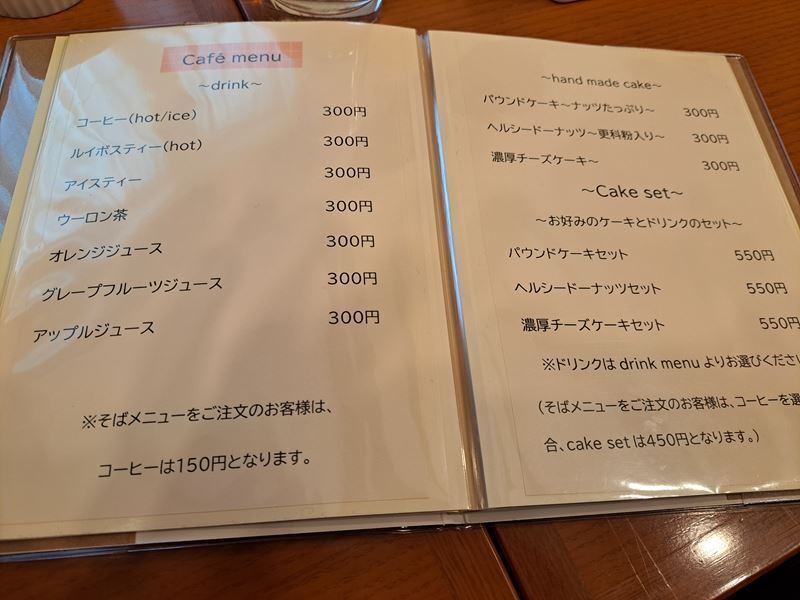 Café menu
～drink～
コーヒー(hot/ice) 300円
ルイボスティー(hot) 300円
アイスティー 300円
ウーロン茶 300円
オレンジジュース 300円
グレープフルーツジュース 300円
アップルジュース 300円
※そばメニューをご注文のお客様は、
コーヒーは150円となります。
～hand made cake～
パウンドケーキ～ナッツたっぷり～ 300円
ヘルシードーナッツ～更科粉入り～ 300円
濃厚チーズケーキ～ 300円
～Cake set～
～お好みのケーキとドリンクのセット～
パウンドケーキセット 550円
ヘルシードーナッツセット 550円
濃厚チーズケーキセット 550円
※ドリンクは drink menu よりお選びくださ
(そばメニューをご注文のお客様は、コーヒーを選
合、cake set は450円となります。)